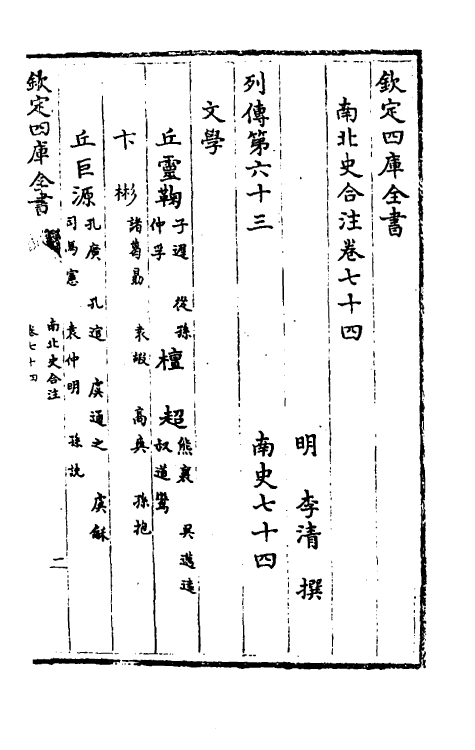 欽定四庫全書
南北史合注卷七十四
明 李清 撰
列傳第六十三 南史七十四
文學
丘靈鞠 子遲 從孫仲孚 檀超 熊襄 吳邁遠 叔道鸞
卞彬 諸葛勗 袁嘏 高爽 孫抱
丘巨源 孔廣 孔逭 虞通之 虞龢 司馬憲 袁仲明 孫詵
欽定四庫全書
南北史合注
卷七十四